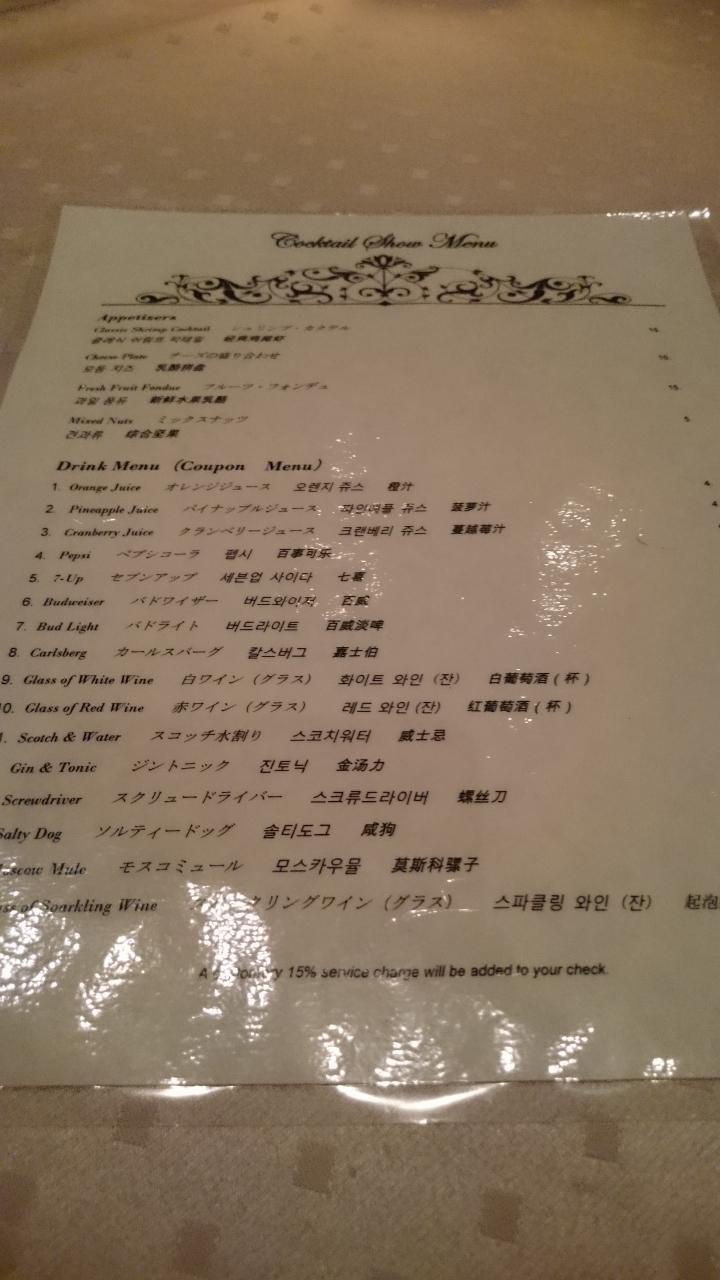 Cocktail Show Menu
Appetizers
Classic Shrimp Cocktail シュリンプ・カクテル
클래식 쉬림프 칵테일
Cheese Plate チーズの盛り合わせ
모듬 치즈 乳酪拼盘
Fresh Fruit Fondue フルーツ・フォンデュ
과일 퐁듀 新鲜水果乳酪
Mixed Nuts ミックスナッツ 5.
견과류 综合坚果
Drink Menu (Coupon Menu)
1. Orange Juice オレンジジュース 오렌지 쥬스 橙汁 4.
2. Pineapple Juice パイナップルジュース 파인애플 쥬스 菠萝汁 4.
3. Cranberry Juice クランベリージュース 크랜베리 쥬스 蔓越莓汁
4. Pepsi ペプシコーラ 펩시 百事可乐
5. 7-Up セブンアップ 세븐업 사이다 七喜
6. Budweiser バドワイザー 버드와이저 百威
7. Bud Light バドライト 버드라이트 百威淡啤
8. Carlsberg カールスバーグ 칼스버그 嘉士伯
9. Glass of White Wine 白ワイン（グラス） 화이트 와인 (잔) 白葡萄酒 ( 杯 )
10. Glass of Red Wine 赤ワイン（グラス） 레드 와인 (잔) 红葡萄酒 ( 杯 )
1. Scotch & Water スコッチ水割り 스코치워터 威士忌
Gin & Tonic ジントニック 진토닉 金汤力
Screwdriver スクリュードライバー 스크류드라이버 螺丝刀
Salty Dog ソルティードッグ 솔티도그 咸狗
Moscow Mule モスコミュール 모스카우뮬 莫斯科骡子
of Sparkling Wine クリングワイン（グラス） 스파클링 와인 (잔) 起泡
A 15% service charge will be added to your check.